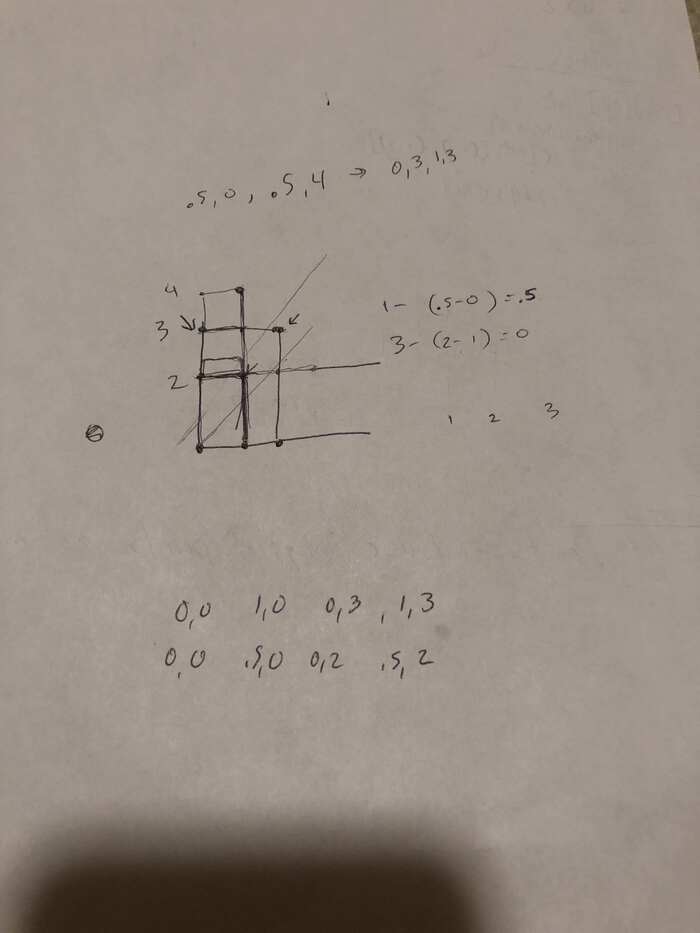 .5,0, .5,4 → 0,3,1,3
4
1- (.5-0)=.5
3
3- (2-1)=0
2
1 2 3
0,0 1,0 0,3, 1,3
0,0 .5,0 0,2 .5,2